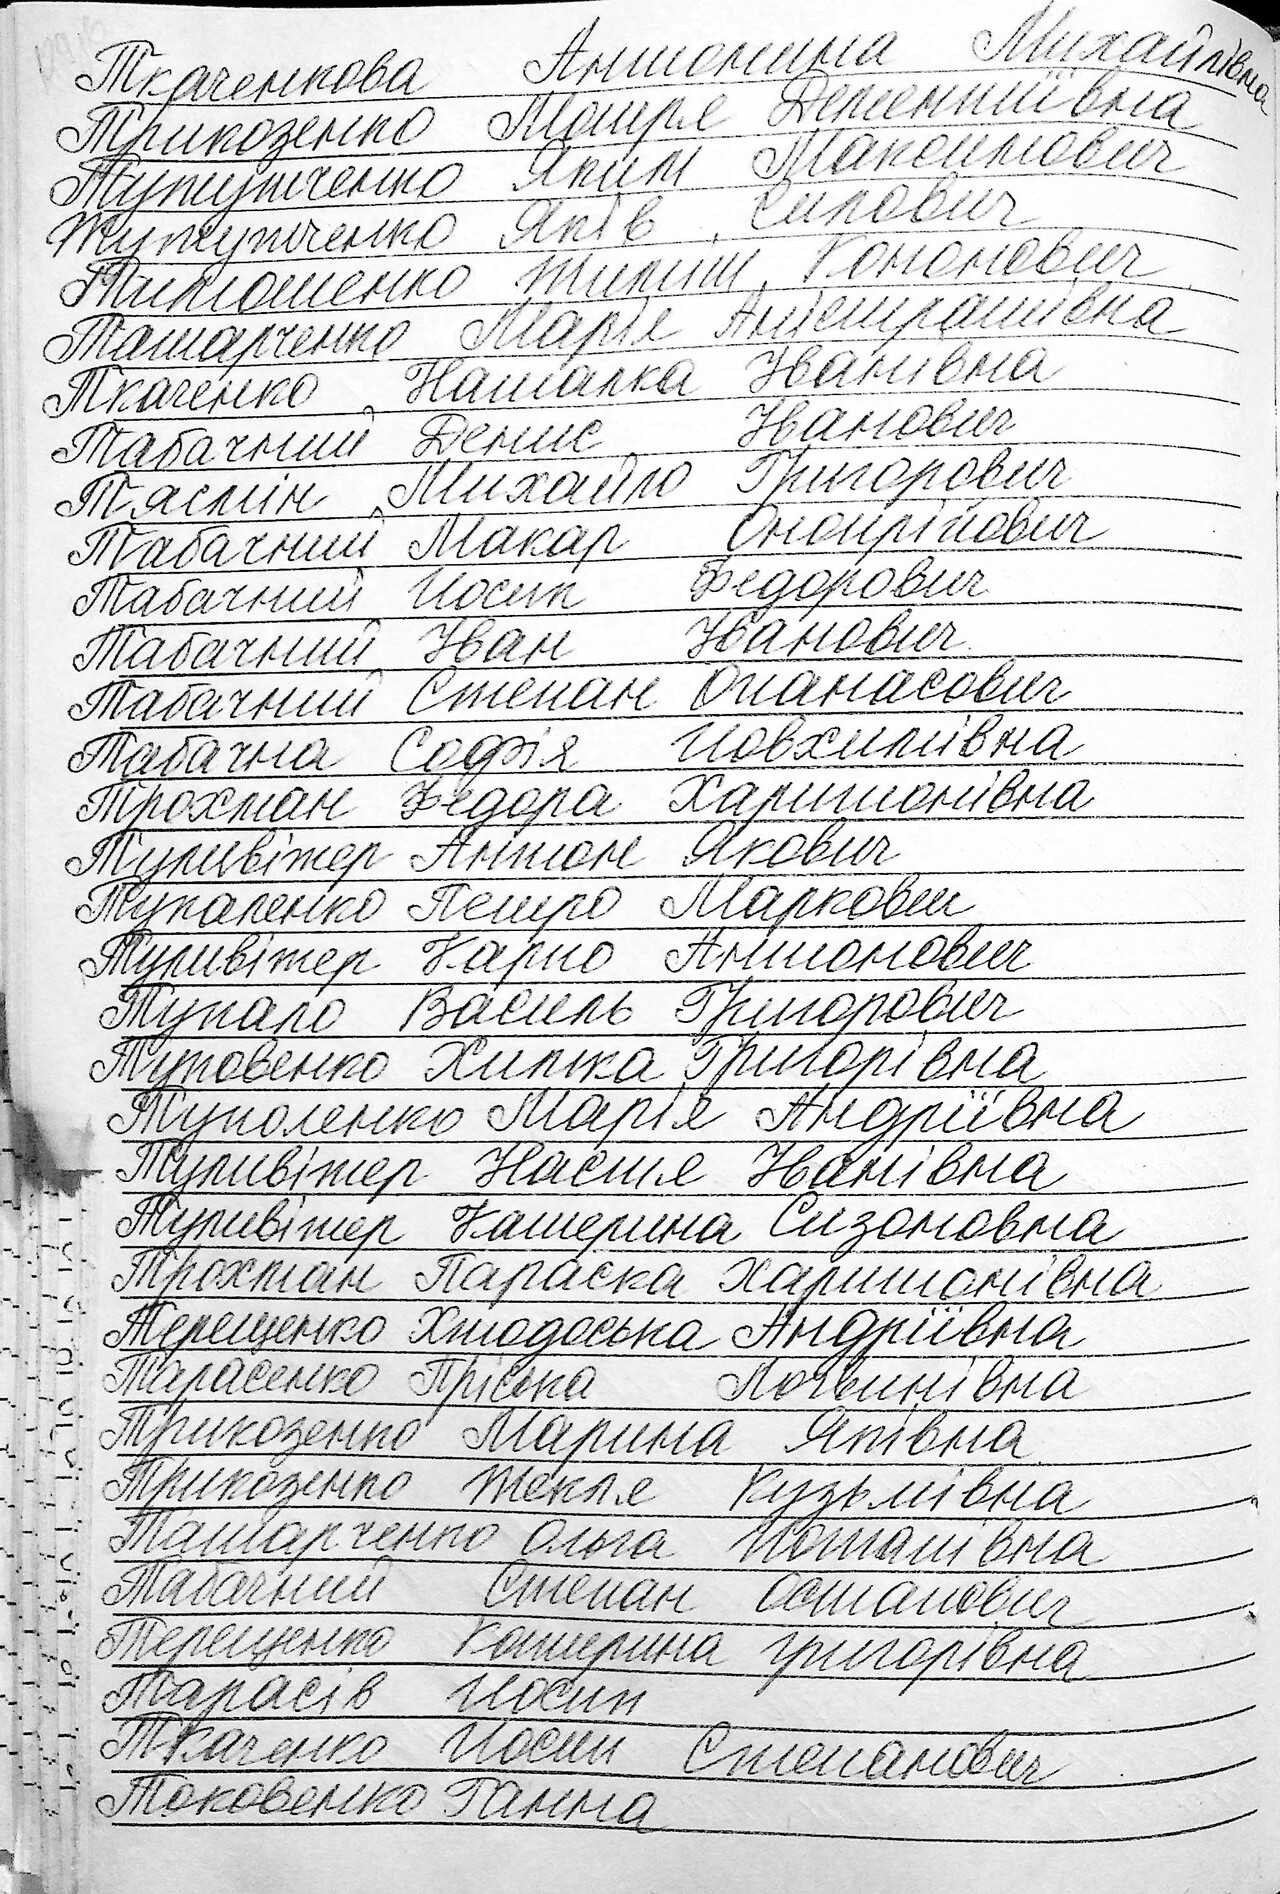 Ткаченкова Антонина Михайлівна
Трикозенко Мотря Дементіївна
Тутутченко Яким Максимович
Тутутченко Яків Силович
Тимошенко Тиміш Кононович
Татарченко Марія Аністратівна
Ткаченко Наталка Іванівна
Табачний Денис Іванович
Тясмін Михайло Григорович
Табачний Макар Онопрійович
Табачний Йосип Федорович
Табачний Іван Іванович
Табачний Степан Опанасович
Табачна Софія Йовхимівна
Трохман Федора Харитонівна
Туривітер Антон Якович
Тукаленко Петро Маркович
Туривітер Карпо Антонович
Тукало Василь Григорович
Туковенко Химка Григорівна
Туколенко Марія Андріївна
Туривітер Настя Іванівна
Туривітер Катерина Сизоновна
Трохман Параска Харитонівна
Терещенко Хтодоська Андріївна
Тарасенко Пріська Логвинівна
Трикозенко Марина Яківна
Трикозенко Текля Кузьмівна
Татарченко Ольга Потапівна
Табачний Степан Остапович
Терещенко Катерина Григорівна
Тарасів Йосип
Ткаченко Йосип Степанович
Токовенко Ганна